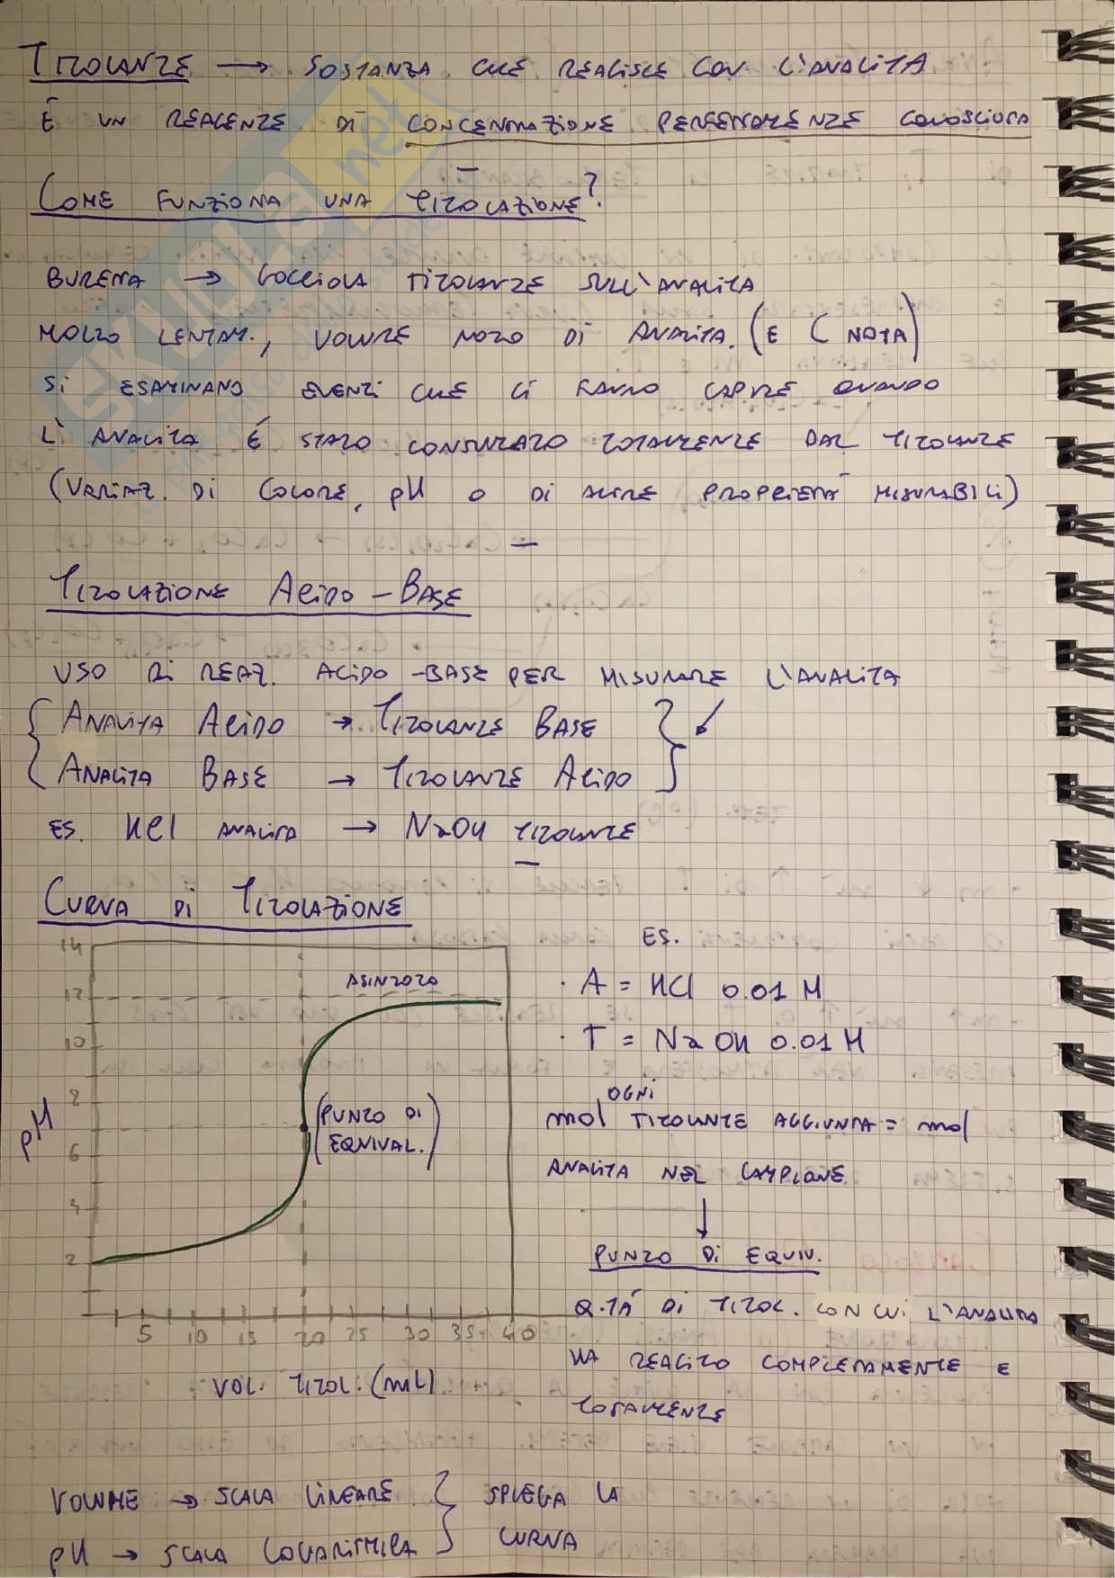 TITOLANTE → SOSTANZA CHE REAGISCE CON L'ANALITA
È UN REAGENTE DI CONCENTRAZIONE PERFETTAMENTE CONOSCIUTA
COME FUNZIONA UNA TITOLAZIONE?
BURETTA → GOCCIOLA TITOLANTE SULL'ANALITA
MOLTO LENTAM., VOLUME NOTO DI ANALITA. (E C NOTA)
SI ESAMINANO EVENTI CHE CI FANNO CAPIRE QUANDO
L'ANALITA È STATO CONSUMATO TOTALMENTE DAL TITOLANTE
(VARIAZ. DI COLORE, pH O DI ALTRE PROPRIETÀ MISURABILI)
TITOLAZIONE ACIDO-BASE
USO DI REAZ. ACIDO-BASE PER MISURARE L'ANALITA
{ ANALITA ACIDO → TITOLANTE BASE }
{ ANALITA BASE → TITOLANTE ACIDO }
ES. HCl ANALITA → NaOH TITOLANTE
CURVA DI TITOLAZIONE
14
12
10
8
6
4
2
pH
ASINTOTO
(PUNTO DI
EQUIVAL.)
5 10 15 20 25 30 35 40
VOL. TITOL. (mL)
ES.
· A = HCl 0.01 M
· T = NaOH 0.01 M
OGNI
mol TITOLANTE AGGIUNTA = mol
ANALITA NEL CAMPIONE
↓
PUNTO DI EQUIV.
Q.TÀ DI TITOL. CON CUI L'ANALITA
HA REAGITO COMPLETAMENTE E
TOTALMENTE
VOLUME → SCALA LINEARE } SPIEGA LA
pH → SCALA LOGARITMICA } CURVA
SKUOLA.net